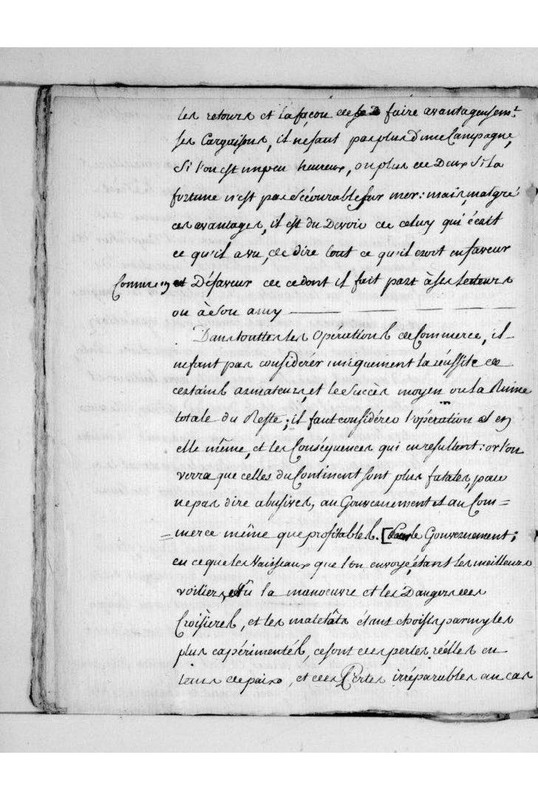 les retours et la façon de se faire avantageusemt.
ses Carguisons, il ne faut pas plus d'une Campagne,
Si l'on est un peu heureux, ou plus de Deux Si la
fortune n'est pas Sécourable sur mer: mais, malgré
ces avantages, il est du Devoir de celuy qui écrit
ce qu'il a vu, de dire tout ce qu'il croit en faveur
et Défaveur de ce dont il fait part à ses Lecteurs
ou à Son amy
Dans touttes les Opérations de Commerce, il
ne faut pas considérer uniquement la réussite de
certains armateurs, et le Succès moyen ou la Ruine
totale du Reste; il faut considérer l'opération en
elle même, et les Conséquences qui en resultent: or l'on
verra que celles du Continent sont plus fatales, pour
ne pas dire abusives, au Gouvernement et au Com=
=merce même que profitables. [le Gouvernement;
en ce que les Vaisseaux que l'on envoye, étant les meilleurs
voiliers, vû la manoeuvre et les Dangers des
Croisieres, et les matelots étant choisis parmy les
plus expérimentés, ce sont des pertes réelles en
tems de paix, et des Pertes irréparables au cas